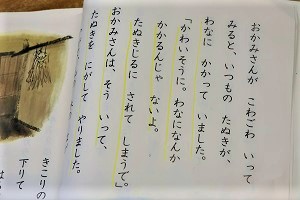 おかみさんが こわごわ いって
みると、いつもの たぬきが、
わなに かかって いました。
「かわいそうに。わなになんか
かかるんじゃ ないよ。
たぬきじるに されて しまうで。」
おかみさんは、そう いって、
たぬきを にがして やりました。
きこりの
下りて